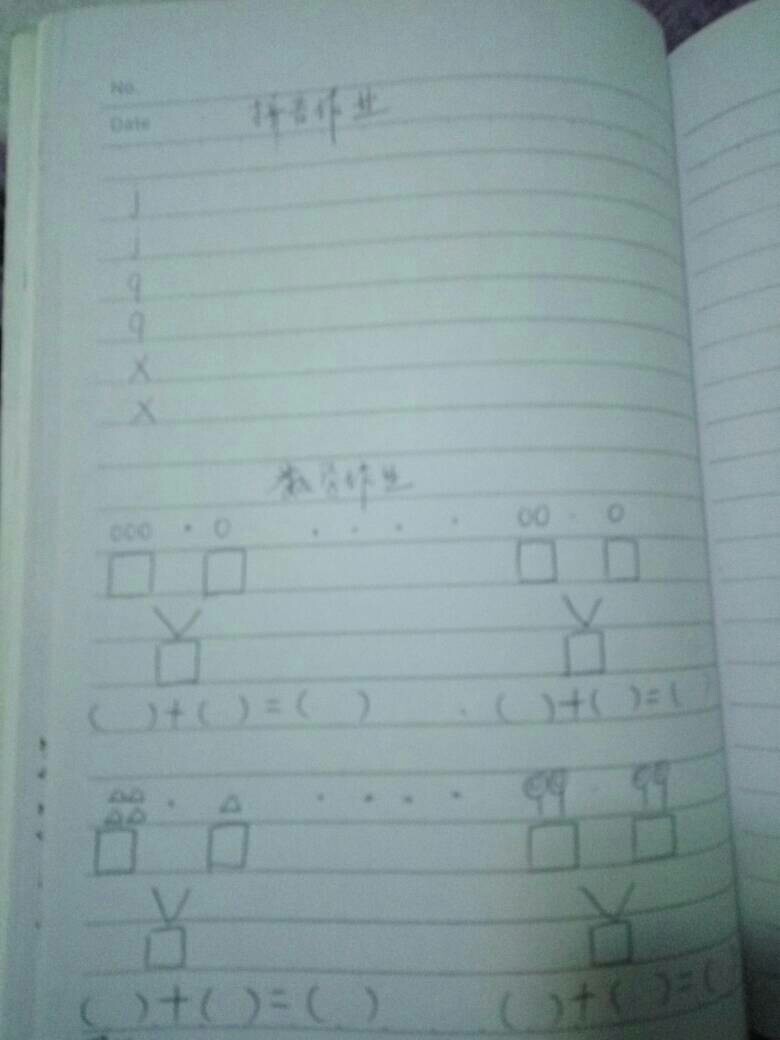 No.
Date
拼音作业
j
j
q
q
x
x
作业
( ) + ( ) = ( )
( ) + ( ) = ( )
( ) + ( ) = ( )
( ) + ( ) = ( )